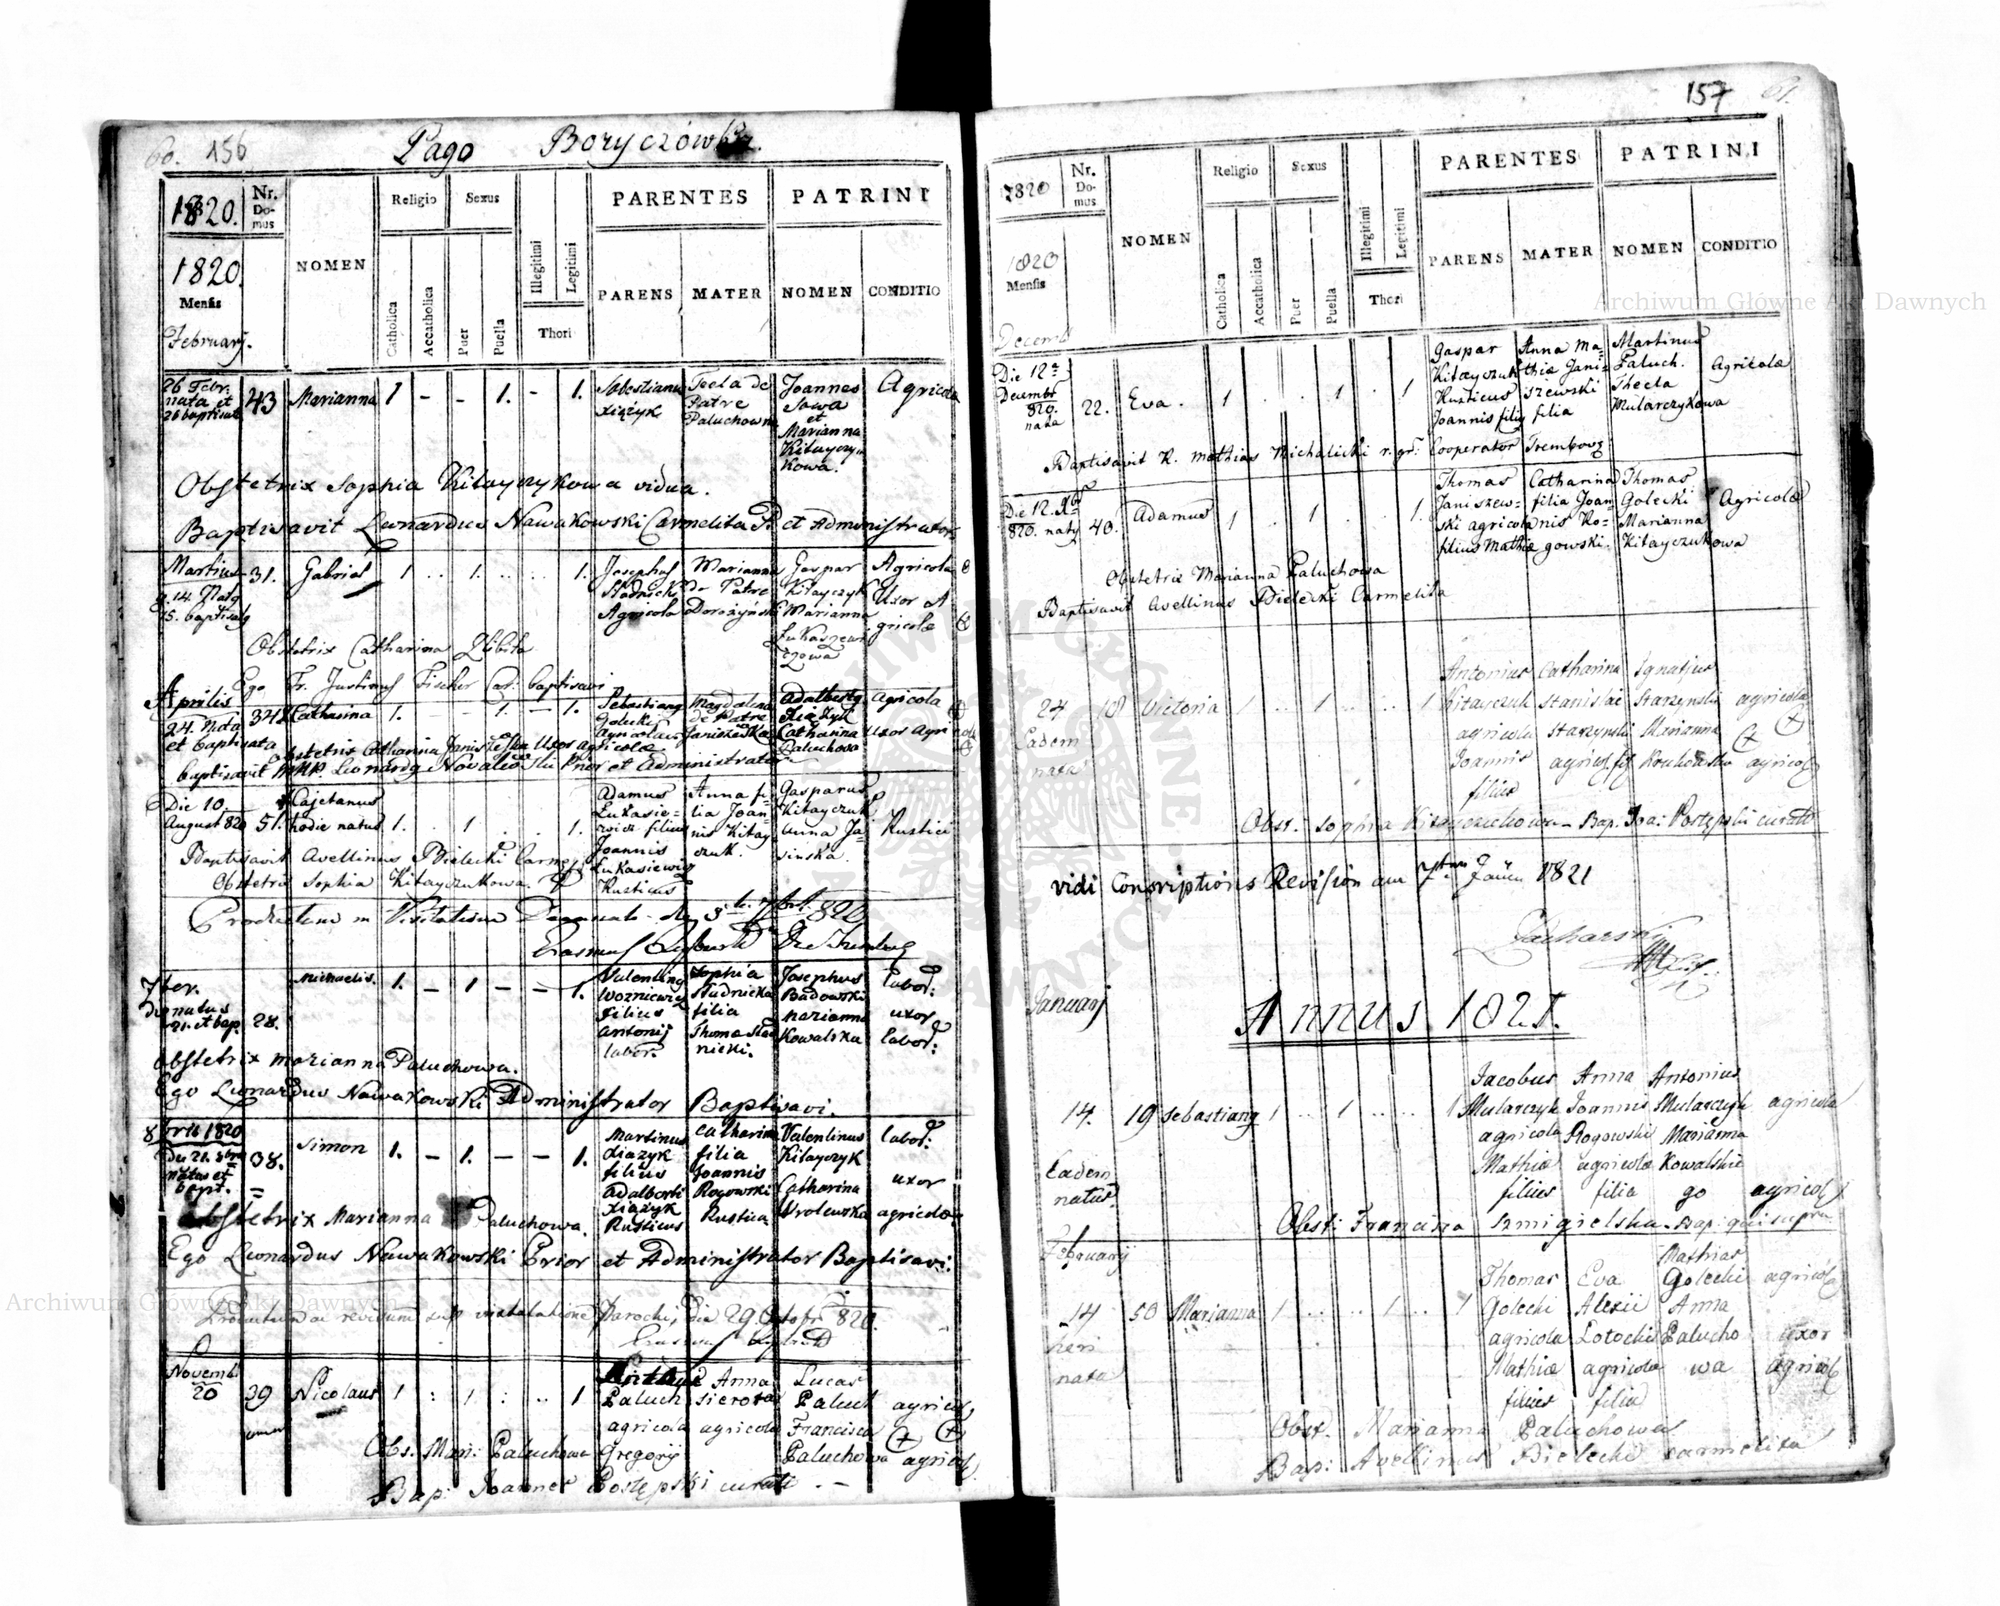 60. 156
Pago Boryczówka.
1820.
Nr. Domus
NOMEN
Religio
Sexus
Illegitimi
Legitimi
PARENTES
PATRINI
1820.
Mensis
February.
Catholica
Accatholica
Puer
Puella
Thori
PARENS
MATER
NOMEN
CONDITIO
26 Febr. nata et 26 baptisat
43
Marianna
1 - - 1. - 1.
Sebestianus Xiążyk
Tecla de Patre Paluchowna
Joannes Sowa et Marianna Kitayczykowa.
Agricola
Obstetrix Sophia Kitayczykowa vidua.
Baptisavit Leonardus Nawakowski Carmelita P. et Administrator
Martius
14. Natq
15. baptisatq
31.
Gabriel
1 .. 1. .. .. 1.
Josephus Stadnicki Agricola
Marianna de Patre
Gaspar Kitayczyk Marianna Łukaszewiczowa
Agricola Uxor Agricolæ
Obstetrix Catharina
Ego Fr. Justinus Fischer Car. baptisavi
Aprilis
24. Nata et baptisata
34
Catharina
1. - - 1. - 1.
Sebestianq Golecki Agricola
Magdalena de Patre Janiszeska
Adalbertq Xiążyk Catharina Paluchowa
Agricola Uxor Agri
Obstetrix Catharina Janiszeska Uxor agricolæ
baptisavit Leonardq Novakowski Prior et Administrator
Die 10. August 820
51.
Cajetanus hodie natus
1. . 1 . . 1.
Adamus Łukasiewicz filius Joannis Łukasiewicz Rusticus
Anna filia Joannis Kitayczuk.
Gasparus Kitayczuk Anna Jasinska.
Rustici
Baptisavit Avellinus Bielecki Carmel
Obstetrix Sophia Kitayczukowa.
7ber.
natus 21. et bap.
28.
Michaelis.
1. - 1 - - 1.
Valentinq Wozniewicz filius Antonij labor.
Sophia Studnicka filia Thoma Studnicki.
Josephus Badowski Marianna Kowalska
labor: uxor labor:
Obstetrix Marianna Paluchowa.
Ego Leonardus Nawakowski Administrator Baptisavi.
8bris 1820
Die 21. 8bris natus et bapt.
38.
Simon
1. - 1. - - 1.
Martinus Xiazyk filius Adalberti Xiazyk Rusticus
Catharina filia Joannis Rogowski Rustica
Valentinus Kitayczyk Catharina Wrolewska
labor: uxor agricolæ
Obstetrix Marianna Paluchowa.
Ego Leonardus Nawakowski Prior et Administrator Baptisavi.
Die 29. Octobr 820.
Novemb
20
39
Nicolaus
1 : 1 : .. 1
Paluch agricola Gregorij
Anna Sierota agricola
Lucas Paluch Francisca Paluchowa
agricol agricol
Obs. Mari: Paluchowa
Bap: Joannes Postępski curat
157 61.
1820
Nr. Domus
NOMEN
Religio
Sexus
Illegitimi
Legitimi
PARENTES
PATRINI
1820
Mensis
Decemb
Catholica
Accatholica
Puer
Puella
Thori
PARENS
MATER
NOMEN
CONDITIO
Die 12ª Decembr 820. nata
22.
Eva.
1 . . 1 . 1
Gaspar Kitayczuk Rusticus Joannis filiq
Anna Mathiæ Janiszewski filia
Martinus Paluch. Thecla Mularczykowa
Agricolæ
Baptisavit R. Mathias Michalicki r. gr. Cooperator Trembow
Die 12. Xbr 820. natq
40.
Adamus
1 . 1 . . 1.
Thomas Janiszewski agricola filius Mathiæ
Catharina filia Joannis Rogowski.
Thomas Golecki Marianna Kitayczukowa
Agricolæ
Obstetrix Marianna Paluchowa
Baptisavit Avellinus Bielecki Carmelita
24
Eadem nata
18
Victoria
1 . . 1 . . 1
Antonius Kitayczuk agricola Joannis filius
Catharina Stanislai Starzynski agricol. fil
Ignatius Starzynski Marianna
agricola agricol
Obst. Sophia Kitayczuchowa - Bap. Joa: Postępski curat
vidi Conscriptions Revision am 7ten Janer 1821
Januarij
Annus 1821.
14.
Eadem natus
19
Sebastianq
1 .. 1 .. .. 1
Jacobus Mularczyk agricola Mathiæ filius
Anna Joannis Rogowski agricolæ filia
Antonius Mularczyk Marianna Kowalskiego
agricola agricol
Obst: Francisca Szmigielska. Bap: qui supra
Februarij
14
heri nata
50
Marianna
1 .. .. 1 .. 1
Thomas Golecki agricola Mathiæ filius
Eva Alexii Lotocki agricolæ filia
Mathias Golecki Anna Paluchowa
agricol uxor agricol
Obst. Marianna Paluchowa
Bap: Avellinus Bielecki carmelita
Archiwum Główne Akt Dawnych
Archiwum Główne Akt Dawnych
ARCHIWUM GŁÓWNE AKT DAWNYCH